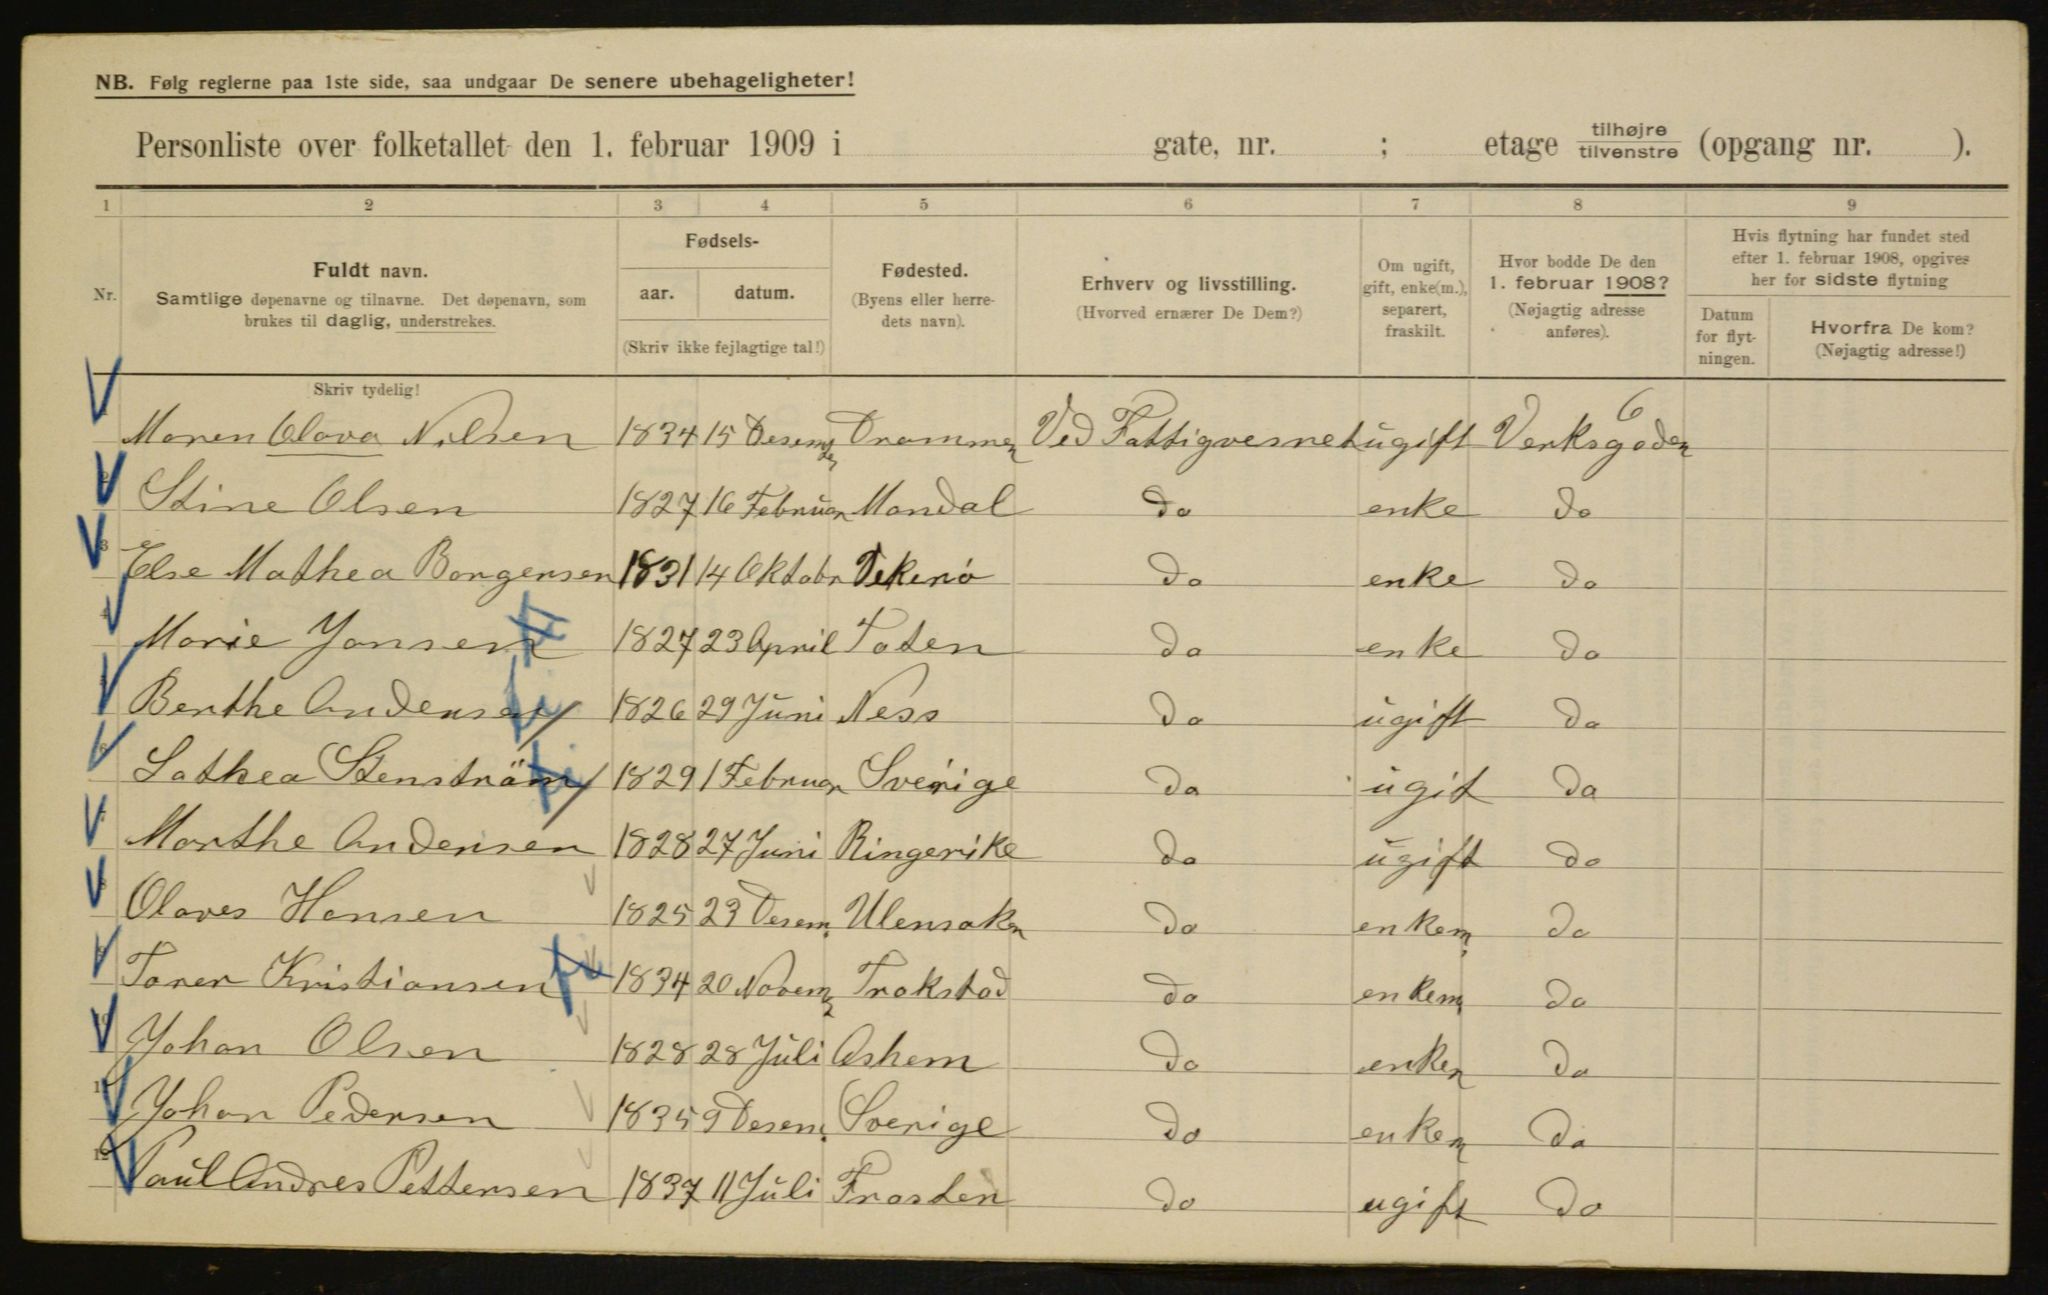 NB. Følg reglerne paa 1ste side, saa undgaar De senere ubehageligheter!
Personliste over folketallet den 1. februar 1909 i gate, nr. ; etage tilhøjre tilvenstre (opgang nr. ).
1 2 3 4 5 6 7 8 9
Nr.
Fuldt navn.
Samtlige døpenavne og tilnavne. Det døpenavn, som
brukes til daglig, understrekes.
Fødsels-
aar. datum.
(Skriv ikke fejlagtige tal!)
Fødested.
(Byens eller herre-
dets navn).
Erhverv og livsstilling.
(Hvorved ernærer De Dem?)
Om ugift,
gift, enke(m.),
separert,
fraskilt.
Hvor bodde De den
1. februar 1908?
(Nøjagtig adresse
anføres).
Hvis flytning har fundet sted
efter 1. februar 1908, opgives
her for sidste flytning
Datum
for flyt-
ningen.
Hvorfra De kom?
(Nøjagtig adresse!)
Skriv tydelig!
Maren Olava Nilsen 1834 15 Desember Drammen Ved Fattigvesnet ugift Verksgaden 6
2 Stine Olsen 1827 16 Februar Mandal do enke do
3 Else Mathea Borgersen 1831 14 Oktobr Tekerø do enke do
4 Marie Jansen 1827 23 April Toten do enke do
5 Berthe Andersen 1826 29 Juni Ness do ugift do
6 Lathea Stenström 1829 1 Februar Sverige do ugit do
7 Marthe Andersen 1828 27 Juni Ringerike do ugift do
8 Olaves Hansen 1825 23 Desem Ulensaker do enkem do
9 Tarer Kristiansen 1834 20 Novem Trøkstad do enkem do
10 Johan Olsen 1828 28 Juli Ashem do enkem do
11 Johan Pedersen 1835 9 Desem Sverige do enkem do
12 Paul Andres Pettersen 1837 11 Juli Frosten do ugift do